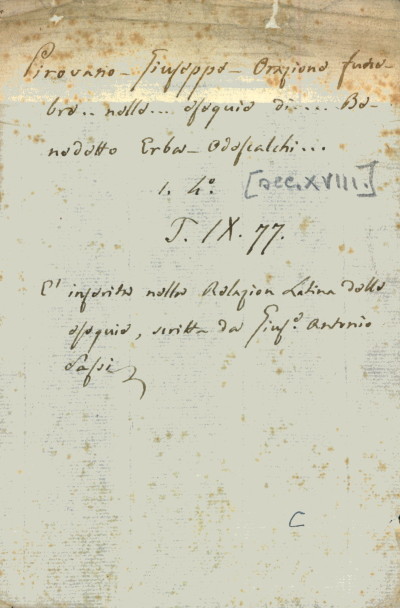 Pirovano - Giuseppe - Orazione fune-
bre.. nelle.... esequie di.... Be-
nedetto Erba-Odescalchi...
1. 4.º [sec. XVIII.]
T. IX. 77.
E' inserita nella Relazion Latina delle
esequie, scritta da Gius.e Antonio
Sassi
C